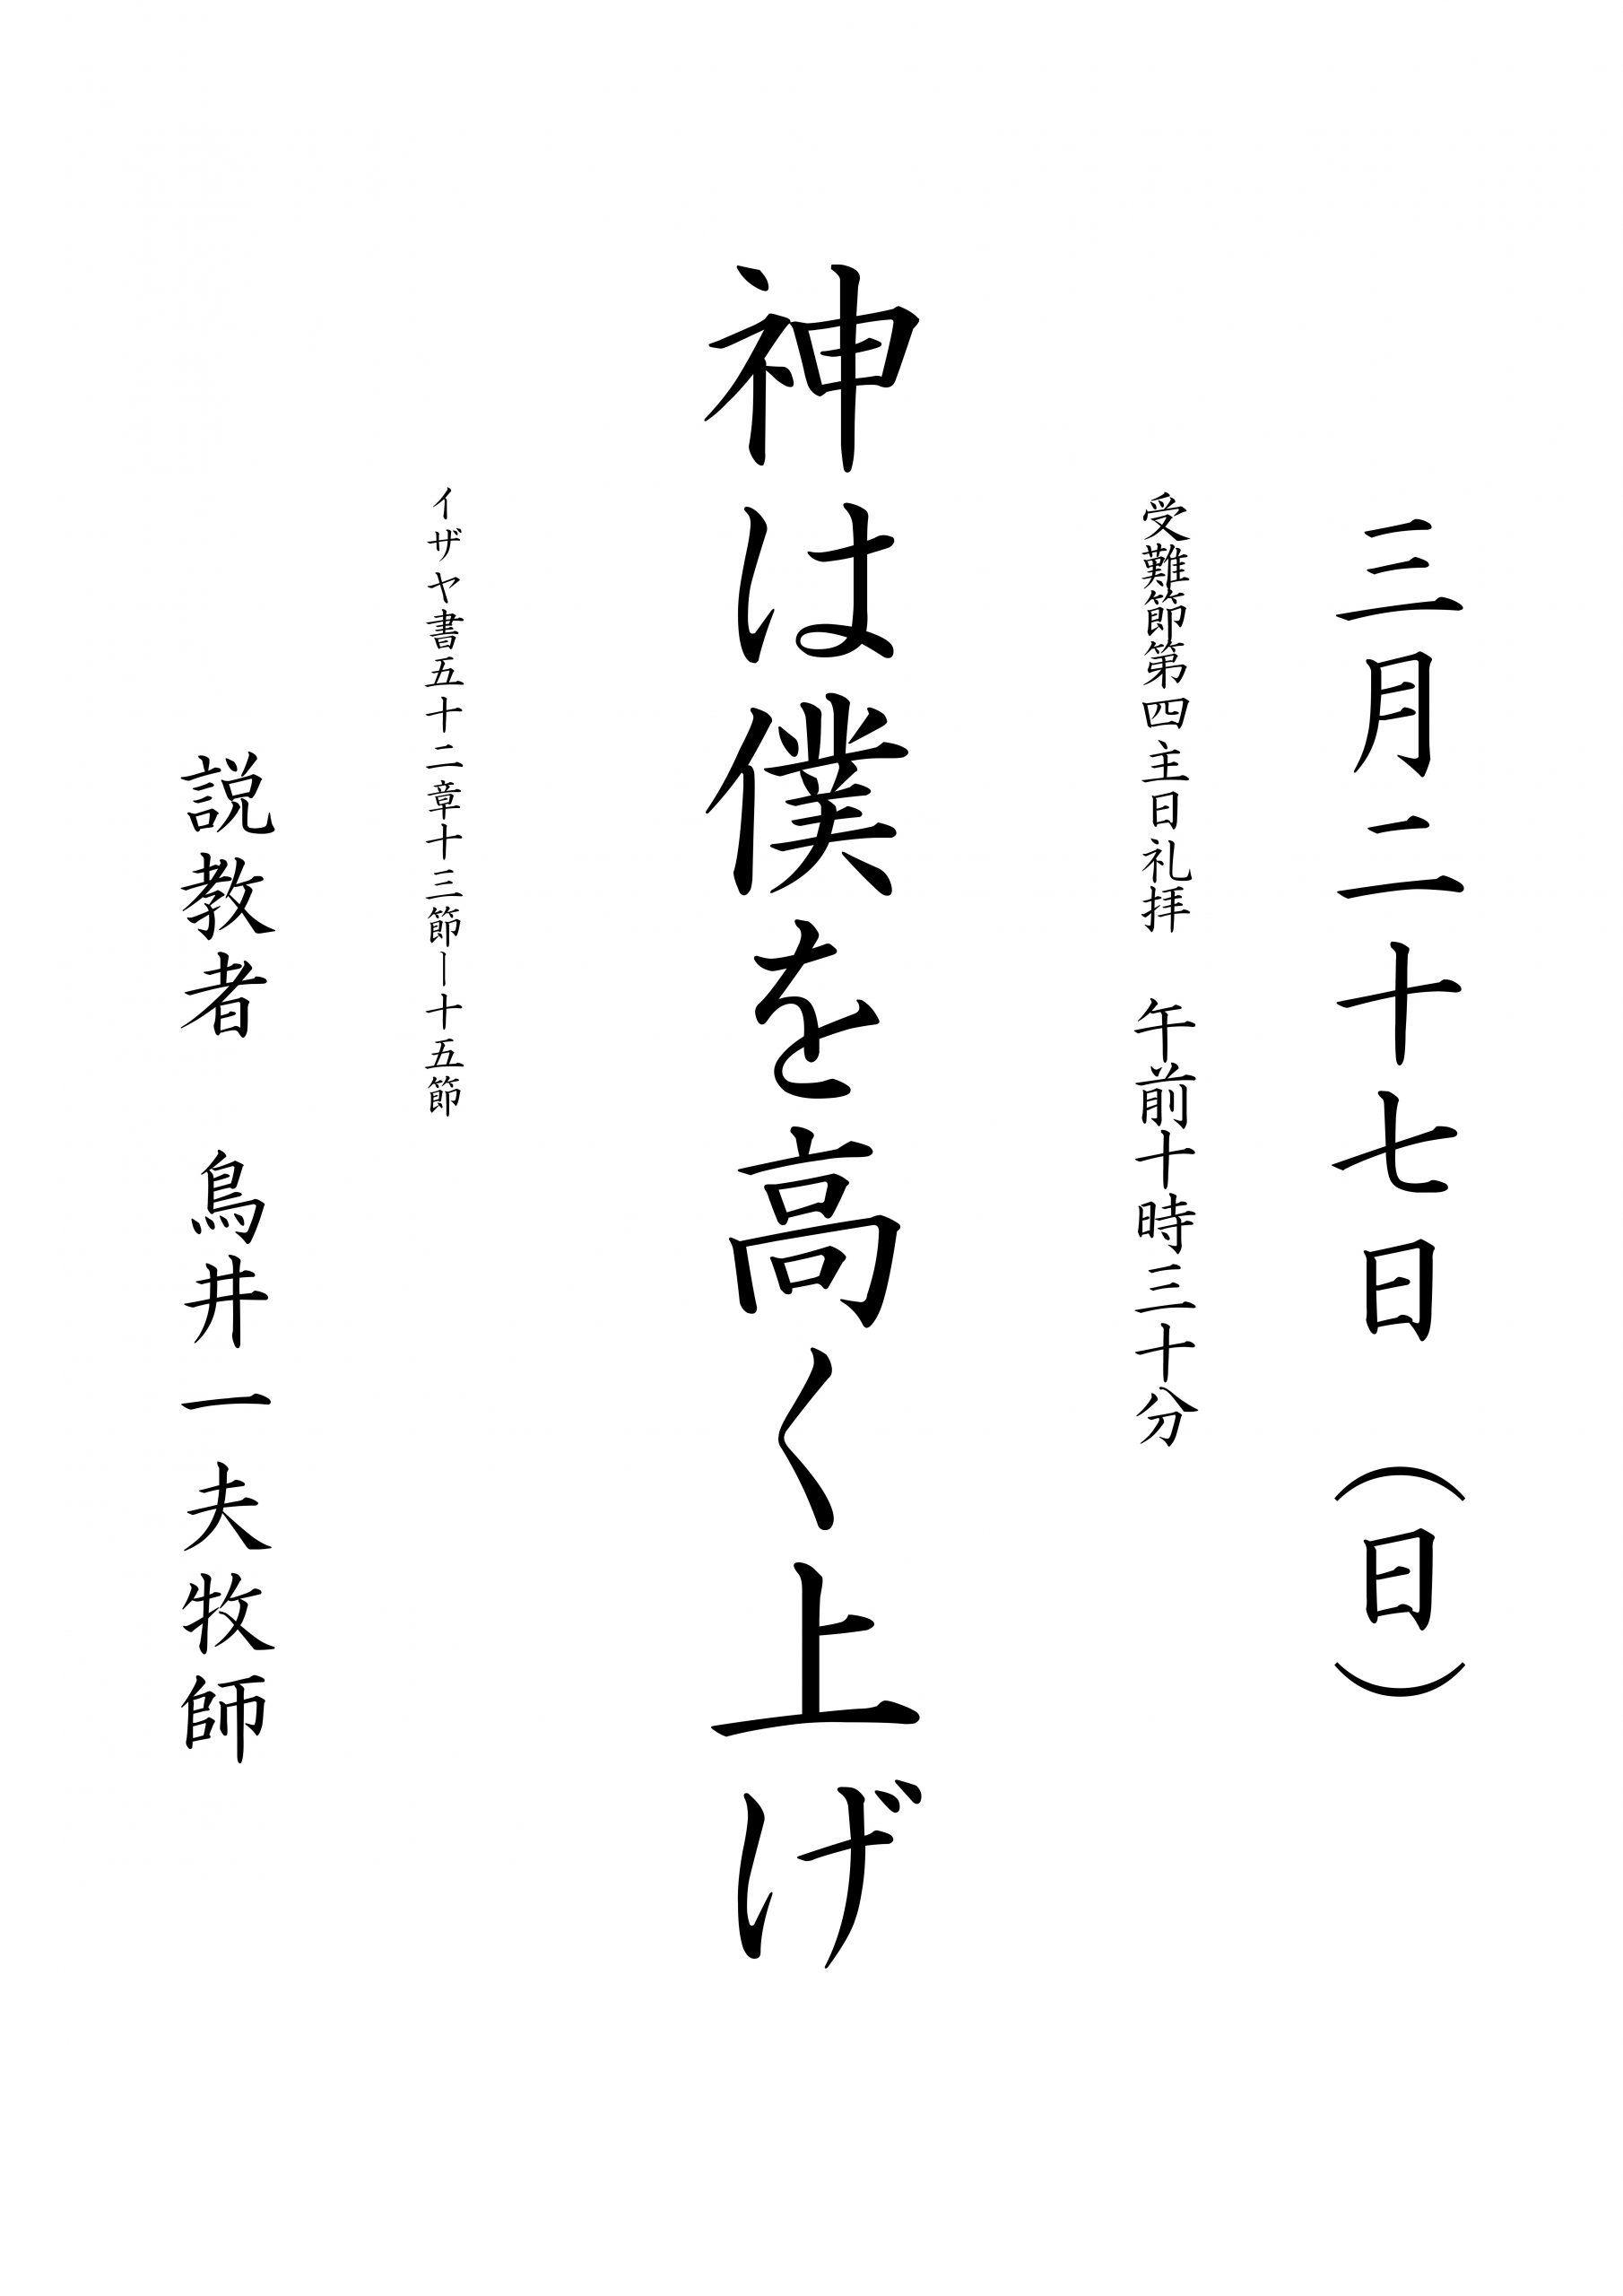 三月二十七日　（日）
受難節第四主日礼拝　午前十時三十分
神は僕を高く上げ
イザヤ書五十二章十三節―十五節
説教者　鳥井一夫牧師